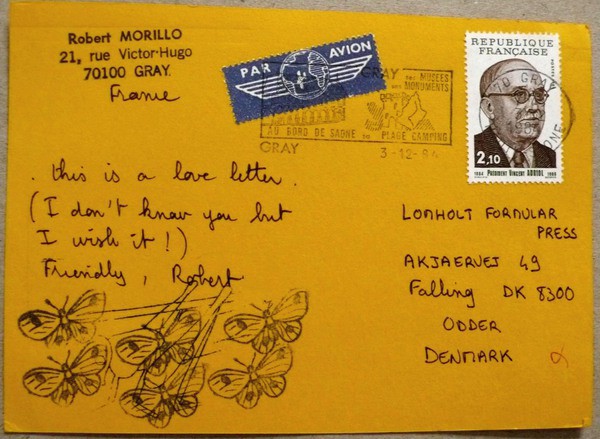 Robert MORILLO
21, rue Victor-Hugo
70100 GRAY.
France
PAR AVION
GRAY
SES MUSÉES
SES MONUMENTS
AU BORD DE SAONE
PLAGE CAMPING
GRAY
3-12-84
REPUBLIQUE
FRANÇAISE
POSTES
GRAY
2,10
1884 Président Vincent AURIOL 1966
. this is a love letter.
(I don't know you but
I wish it!)
Friendly, Robert
LOMHOLT FORMULAR
PRESS
AKJAERVEJ 49
Falling DK 8300
ODDER
DENMARK